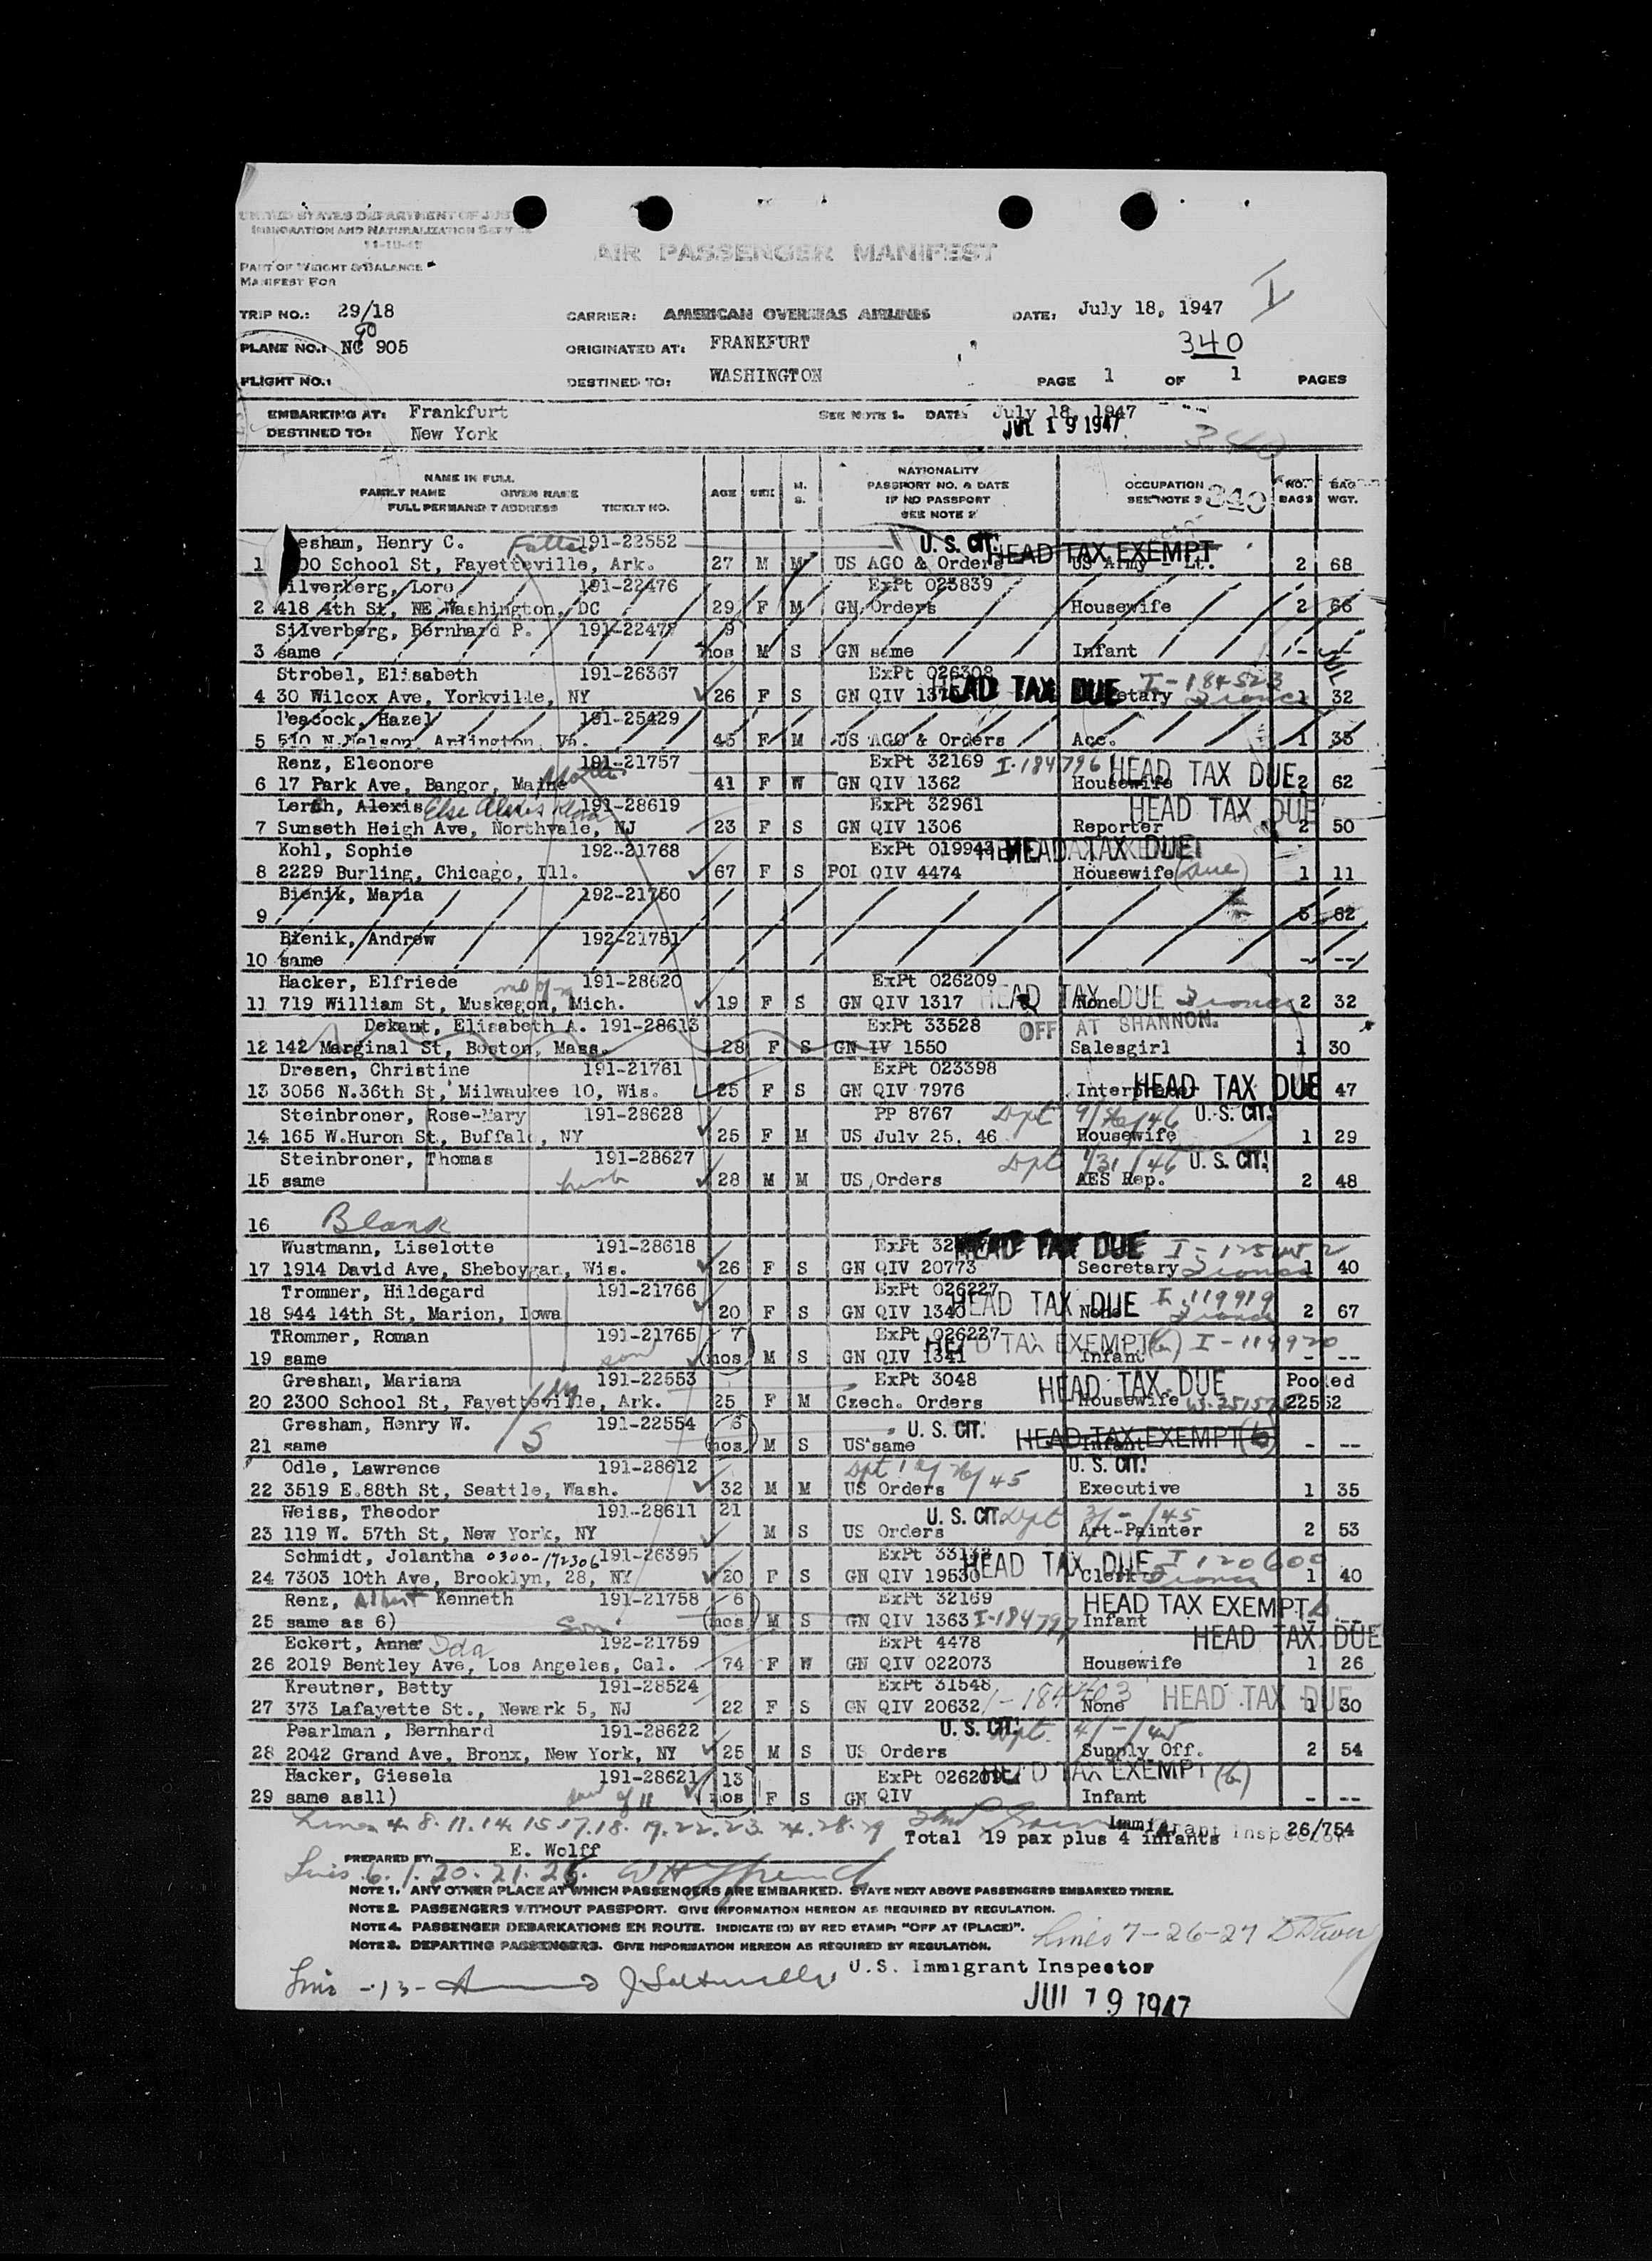 UNITED STATES DEPARTMENT OF JUS
IMMIGRATION AND NATURALIZATION SERVICE
11-10-42
AIR PASSENGER MANIFEST
PART OF WEIGHT & BALANCE
MANIFEST FOR
I
TRIP NO.: 29/18 CARRIER: AMERICAN OVERSEAS AIRLINES DATE: July 18, 1947
90
PLANE NO.: NC 905 ORIGINATED AT: FRANKFURT 340
FLIGHT NO.: DESTINED TO: WASHINGTON PAGE 1 OF 1 PAGES
EMBARKING AT: Frankfurt SEE NOTE 1. DATE: July 18, 1947
DESTINED TO: New York JUL 19 1947
340
NAME IN FULL
FAMILY NAME GIVEN NAME
FULL PERMANENT ADDRESS TICKET NO. AGE SEX M. S. NATIONALITY PASSPORT NO. & DATE IF NO PASSPORT SEE NOTE 2 OCCUPATION SEE NOTE 3 340 NO. BAGS BAG WGT.
esham, Henry C. Father 191-22552 U. S. CIT. HEAD TAX EXEMPT
1 00 School St, Fayetteville, Ark. 27 M M US AGO & Orders US Army - Lt. 2 68
ilverberg, Lore 191-22476 ExPt 023839
2 418 4th St, NE Washington, DC 29 F M GN Orders Housewife 2 66
Silverberg, Bernhard P. 191-22477 9
3 same mos M S GN same Infant - --
Strobel, Elisabeth 191-26367 ExPt 026308 I-184523
4 30 Wilcox Ave, Yorkville, NY 26 F S GN QIV 137 HEAD TAX DUE etary 1 32
Peacock, Hazel 191-25429
5 510 N.Nelson, Arlington, Va. 45 F M US AGO & Orders Acc. 1 33
Renz, Eleonore 191-21757 ExPt 32169 I-184796 HEAD TAX DUE
6 17 Park Ave, Bangor, Maine Mother 41 F W GN QIV 1362 Housewife 2 62
Lerch, Alexis Else Alexis 191-28619 ExPt 32961 HEAD TAX DUE
7 Sunseth Heigh Ave, Northvale, NJ 23 F S GN QIV 1306 Reporter 2 50
Kohl, Sophie 192-21768 ExPt 019943 HEAD TAX DUE
8 2229 Burling, Chicago, Ill. 67 F S POL QIV 4474 Housewife (Due) 1 11
Bienik, Maria 192-21750
9 3 62
Bienik, Andrew 192-21751
10 same - --
Hacker, Elfriede 191-28620 ExPt 026209
11 719 William St, Muskegon, Mich. 19 F S GN QIV 1317 HEAD TAX DUE None 2 32
Dekant, Elisabeth A. 191-28613 ExPt 33528 OFF AT SHANNON.
12 142 Marginal St, Boston, Mass. 28 F S GN IV 1550 Salesgirl 1 30
Dresen, Christine 191-21761 ExPt 023398
13 3056 N.36th St, Milwaukee 10, Wis. 25 F S GN QIV 7976 Interpreter HEAD TAX DUE 47
Steinbroner, Rose-Mary 191-28628 PP 8767 Dpt U. S. CIT.
14 165 W.Huron St, Buffalo, NY 25 F M US July 25. 46 Housewife 1 29
Steinbroner, Thomas 191-28627 Dpt 1/31/46 U. S. CIT.
15 same husb 28 M M US Orders AES Rep. 2 48
16 Blank
Wustmann, Liselotte 191-28618 ExPt 32 HEAD TAX DUE
17 1914 David Ave, Sheboygan, Wis. 26 F S GN QIV 20773 Secretary 1 40
Trommer, Hildegard 191-21766 ExPt 026227 HEAD TAX DUE I-119919
18 944 14th St, Marion, Iowa 20 F S GN QIV 1340 None 2 67
TRommer, Roman 191-21765 7 ExPt 026227 HEAD TAX EXEMPT (b) I-119920
19 same son mos M S GN QIV 1341 Infant - --
Gresham, Mariana 191-22553 ExPt 3048 HEAD TAX DUE Pooled
20 2300 School St, Fayetteville, Ark. 25 F M Czech. Orders Housewife 22552
Gresham, Henry W. 191-22554 6 U. S. CIT. HEAD TAX EXEMPT (b)
21 same S mos M S US same Infant - --
Odle, Lawrence 191-28612 U. S. CIT.
22 3519 E.88th St, Seattle, Wash. 32 M M US Orders Executive 1 35
Weiss, Theodor 191-28611 21 U. S. CIT. Dpt 3/-/45
23 119 W. 57th St, New York, NY M S US Orders Art-Painter 2 53
Schmidt, Jolantha 0300-172306 191-26395 ExPt 33132 HEAD TAX DUE I 120600
24 7303 10th Ave, Brooklyn, 28, NY 20 F S GN QIV 19530 Clerk 1 40
Renz, Albert Kenneth 191-21758 6 ExPt 32169 HEAD TAX EXEMPT
25 same as 6) Son mos M S GN QIV 1363 I-184797 Infant - --
Eckert, Anna Ida 192-21759 ExPt 4478 HEAD TAX DUE
26 2019 Bentley Ave, Los Angeles, Cal. 74 F W GN QIV 022073 Housewife 1 26
Kreutner, Betty 191-28524 ExPt 31548 HEAD TAX DUE
27 373 Lafayette St., Newark 5, NJ 22 F S GN QIV 20632 None 1 30
Pearlman, Bernhard 191-28622 U. S. CIT. Dpt. 4/-/45
28 2042 Grand Ave, Bronx, New York, NY 25 M S US Orders Supply Off. 2 54
Hacker, Giesela 191-28621 13 ExPt 026209 HEAD TAX EXEMPT (b)
29 same as11) of 11 mos F S GN QIV Infant - --
Lines 4. 8. 11. 14. 15. 17. 18. 19. 22. 23. 24. 28. 29 Immigrant Inspector
Total 19 pax plus 4 infants 26/754
PREPARED BY: E. Wolff
Lines 6. 1. 20. 21. 25.
NOTE 1. ANY OTHER PLACE AT WHICH PASSENGERS ARE EMBARKED. STATE NEXT ABOVE PASSENGERS EMBARKED THERE.
NOTE 2. PASSENGERS WITHOUT PASSPORT. GIVE INFORMATION HEREON AS REQUIRED BY REGULATION.
NOTE 4. PASSENGER DEBARKATIONS EN ROUTE. INDICATE (D) BY RED STAMP: "OFF AT (PLACE)".
NOTE 3. DEPARTING PASSENGERS. GIVE INFORMATION HEREON AS REQUIRED BY REGULATION.
Lines 7-26-27
U.S. Immigrant Inspector
Line -13-
JUL 19 1947